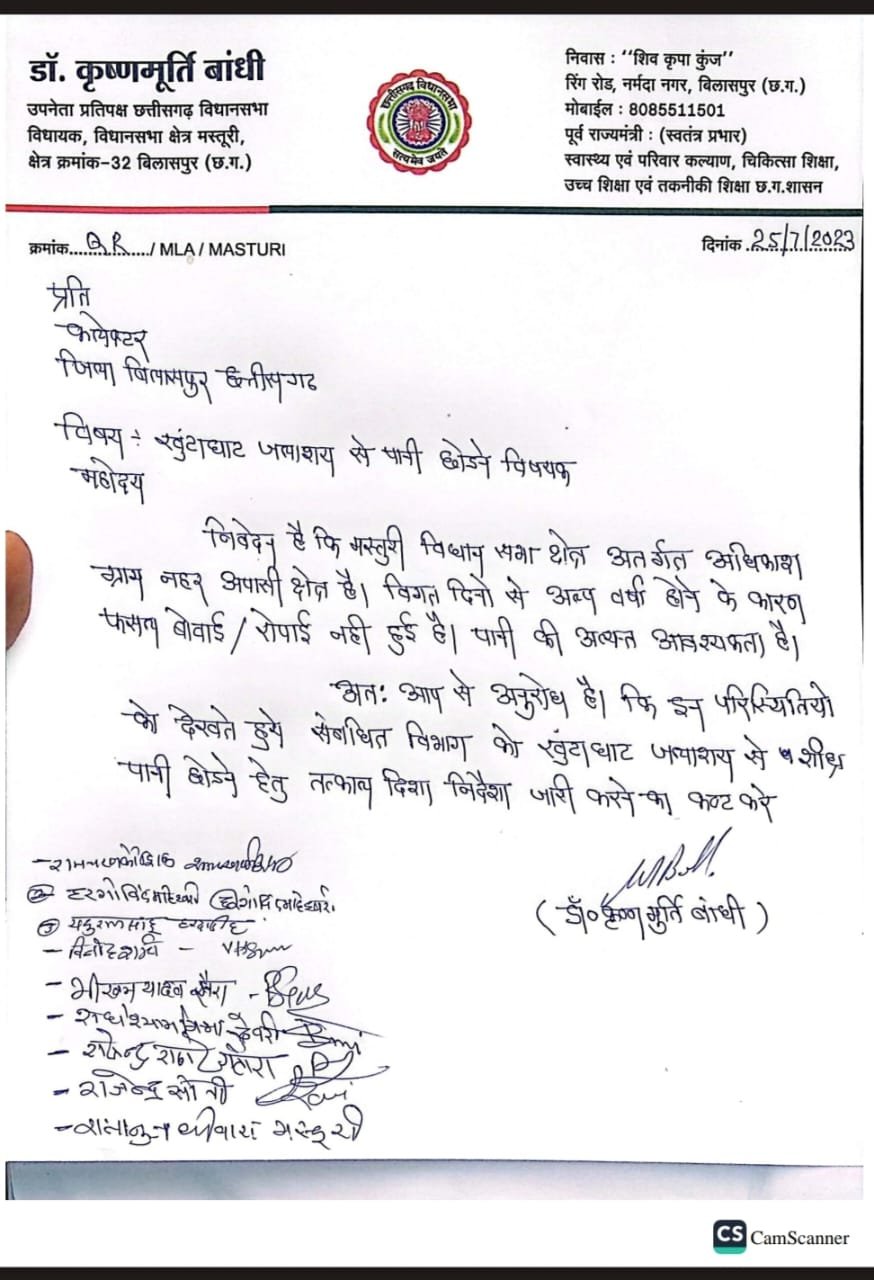 डॉ. कृष्णमूर्ति बांधी
उपनेता प्रतिपक्ष छत्तीसगढ़ विधानसभा
विधायक, विधानसभा क्षेत्र मस्तूरी,
क्षेत्र क्रमांक-32 बिलासपुर (छ.ग.)
छत्तीसगढ़ विधानसभा
सत्यमेव जयते
निवास : ‘‘शिव कृपा कुंज’’
रिंग रोड, नर्मदा नगर, बिलासपुर (छ.ग.)
मोबाईल : 8085511501
पूर्व राज्यमंत्री : (स्वतंत्र प्रभार)
स्वास्थ्य एवं परिवार कल्याण, चिकित्सा शिक्षा,
उच्च शिक्षा एवं तकनीकी शिक्षा छ.ग.शासन
क्रमांक........../ MLA / MASTURI
दिनांक .25/7/2023
प्रति
कलेक्टर
जिला बिलासपुर छत्तीसगढ
विषय ÷ खुंटाघाट जलाशय से पानी छोडने विषयक
महोदय
निवेदन है कि मस्तुरी विधान सभा क्षेत्र अतर्गत अधिकाश
ग्राम नहर अपासी क्षेत्र है। विगत दिनो से अल्प वर्षा होने के कारण
फसल बोवाई / रोपाई नही हुई है। पानी की अत्यन्त आवश्यकता है।
अत: आप से अनुरोध है। कि इन परिस्थितियो
को देखते हुये संबधित विभाग को खुंटाघाट जलाशय से शीध्र
पानी छोडने हेतु तत्काल दिशा निर्देश जारी करने का कष्ट करे
(डॉ० कृष्ण मुर्ति बांधी)
- भीखम यादव
- राजेन्द्र सोनी
CS CamScanner